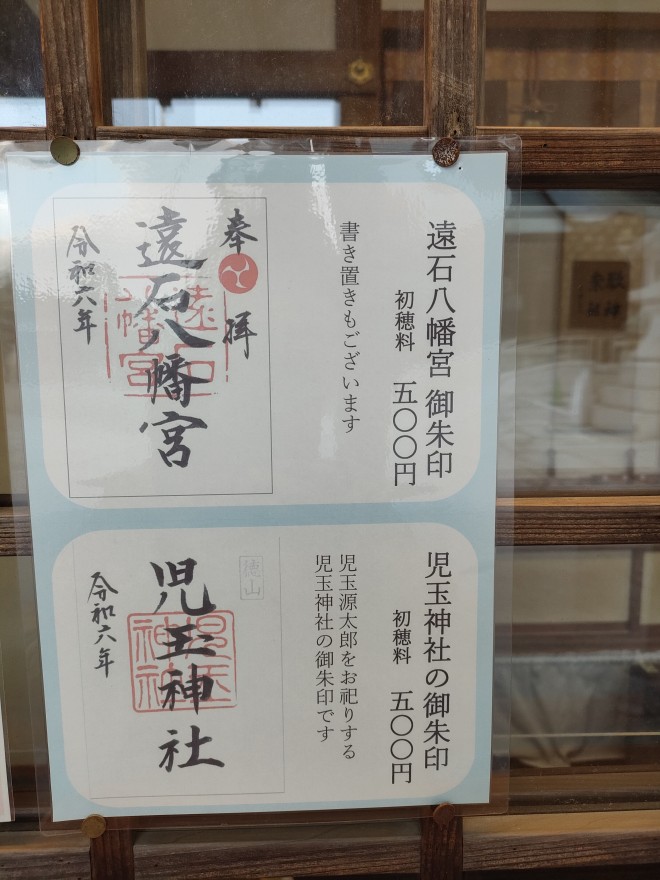 遠石八幡宮 御朱印
初穂料 五〇〇円
書き置きもございます
奉拝
遠石八幡宮
遠石八幡宮
令和六年
児玉神社の御朱印
初穂料 五〇〇円
児玉源太郎をお祀りする
児玉神社の御朱印です
徳山
児玉神社
児玉神社
令和六年